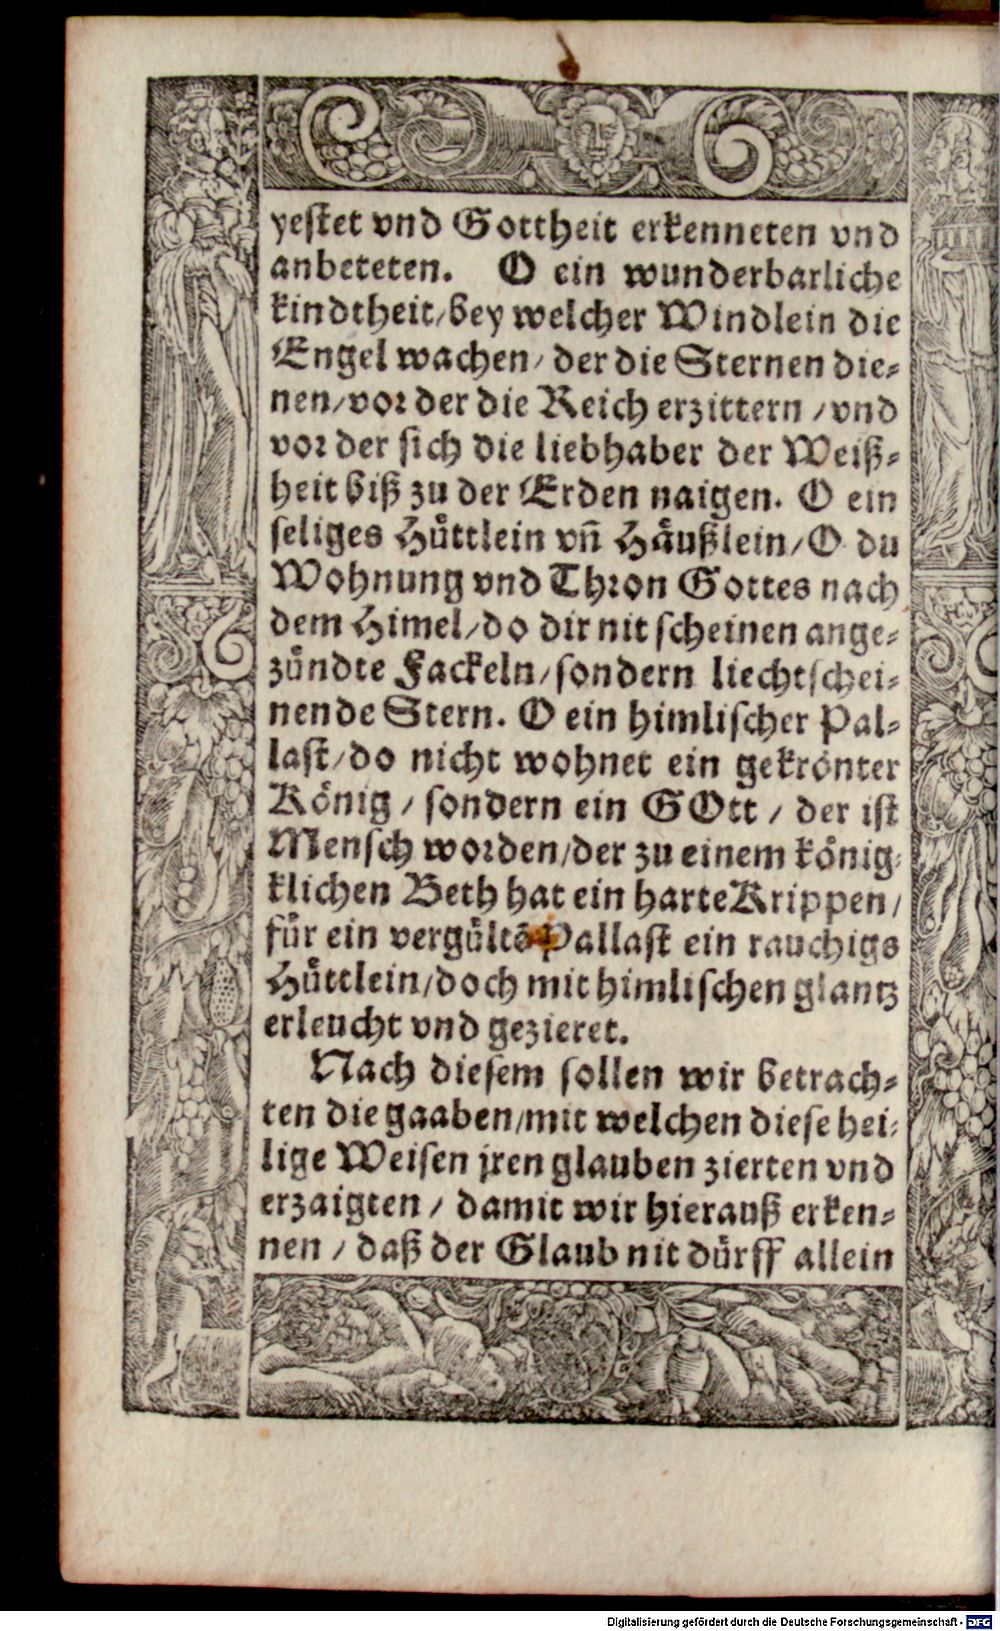 yestet vnd Gottheit erkenneten vnd
anbeteten. O ein wunderbarliche
kindtheit/bey welcher Windlein die
Engel wachen/ der die Sternen die⸗
nen/vor der die Reich erzittern /vnd
vor der sich die liebhaber der Weiß⸗
heit biß zu der Erden naigen. O ein
seliges Huͤttlein vñ Haͤußlein/O du
Wohnung vnd Thron Gottes nach
dem Himel/do dir nit scheinen ange⸗
zuͤndte Fackeln/sondern liechtschei⸗
nende Stern. O ein himlischer Pal⸗
last/do nicht wohnet ein gekroͤnter
Koͤnig / sondern ein GOtt / der ist
Mensch worden/der zu einem koͤnig⸗
klichen Beth hat ein harte Krippen/
fuͤr ein verguͤltẽ Pallast ein rauchigs
Huͤttlein/doch mit himlischen glantz
erleucht vnd gezieret.
Nach diesem sollen wir betrach⸗
ten die gaaben/mit welchen diese hei⸗
lige Weisen jren glauben zierten vnd
erzaigten / damit wir hierauß erken⸗
nen / daß der Glaub nit duͤrff allein
Digitalisierung gefördert durch die Deutsche Forschungsgemeinschaft - DFG